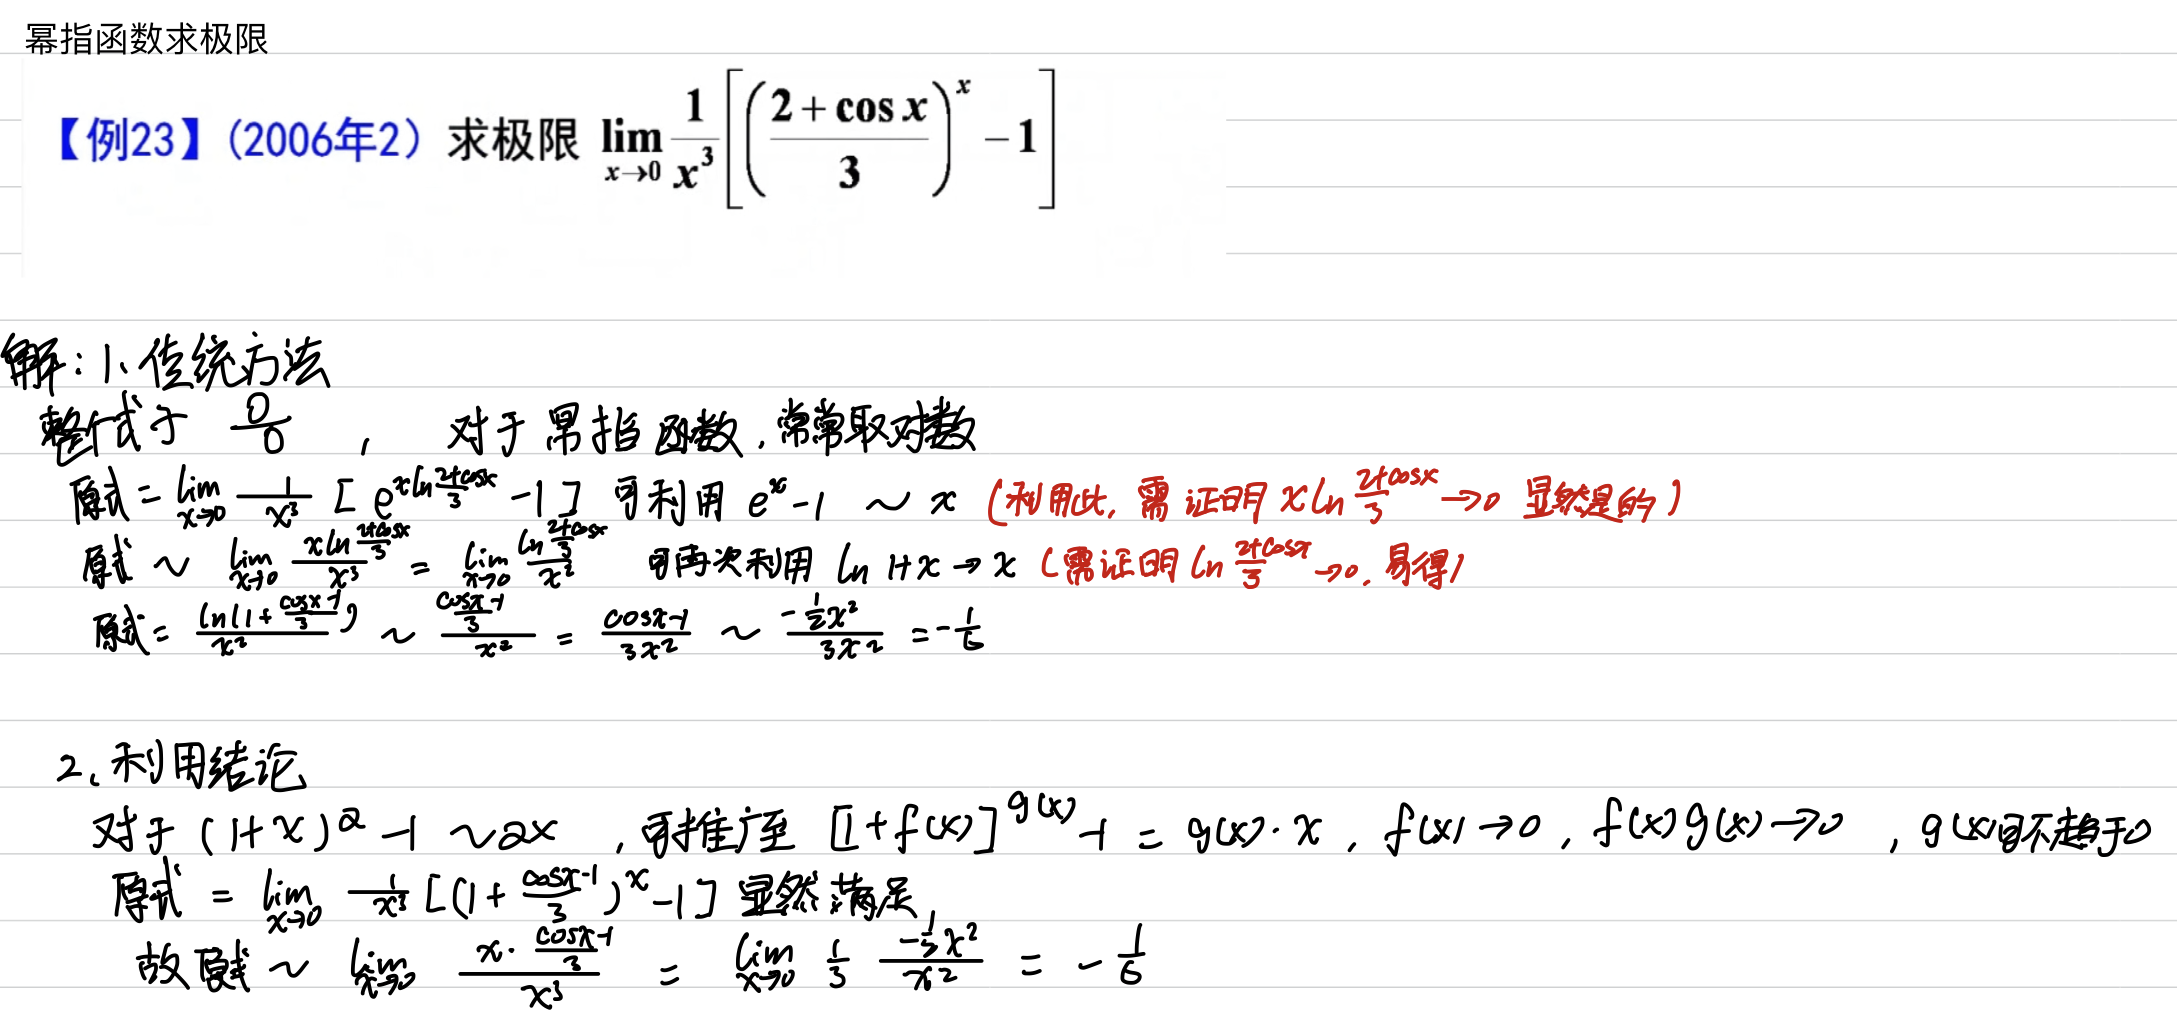 幂指函数求极限
【例23】(2006年2) 求极限 lim_{x→0} \frac{1}{x^3} [ ( \frac{2+cos x}{3} )^x − 1 ]
解:1、传统方法
整体式于 \frac{0}{0} , 对于幂指函数,常常取对数
原式 = lim_{x→0} \frac{1}{x^3} [ e^{x ln \frac{2+cosx}{3}} -1 ] 可利用 e^x -1 ~ x (利用此, 需证明 x ln \frac{2+cosx}{3} → 0 显然是的)
原式 ~ lim_{x→0} \frac{x ln \frac{2+cosx}{3}}{x^3} = lim_{x→0} \frac{ln \frac{2+cosx}{3}}{x^2} 可再次利用 ln 1+x → x (需证明 ln \frac{2+cosx}{3} → 0, 易得)
原式 = \frac{ln(1+\frac{cosx-1}{3})}{x^2} ~ \frac{\frac{cosx-1}{3}}{x^2} = \frac{cosx-1}{3x^2} ~ \frac{-\frac{1}{2}x^2}{3x^2} = -\frac{1}{6}
2、利用结论
对于 (1+x)^a -1 ~ ax , 可推广至 [1+f(x)]^{g(x)} -1 = g(x)·x , f(x)→0 , f(x)g(x)→0 , g(x)可不趋于0
原式 = lim_{x→0} \frac{1}{x^3} [(1+\frac{cosx-1}{3})^x -1] 显然满足
故原式 ~ lim_{x→0} \frac{x·\frac{cosx-1}{3}}{x^3} = lim_{x→0} \frac{1}{3} \frac{-\frac{1}{2}x^2}{x^2} = -\frac{1}{6}